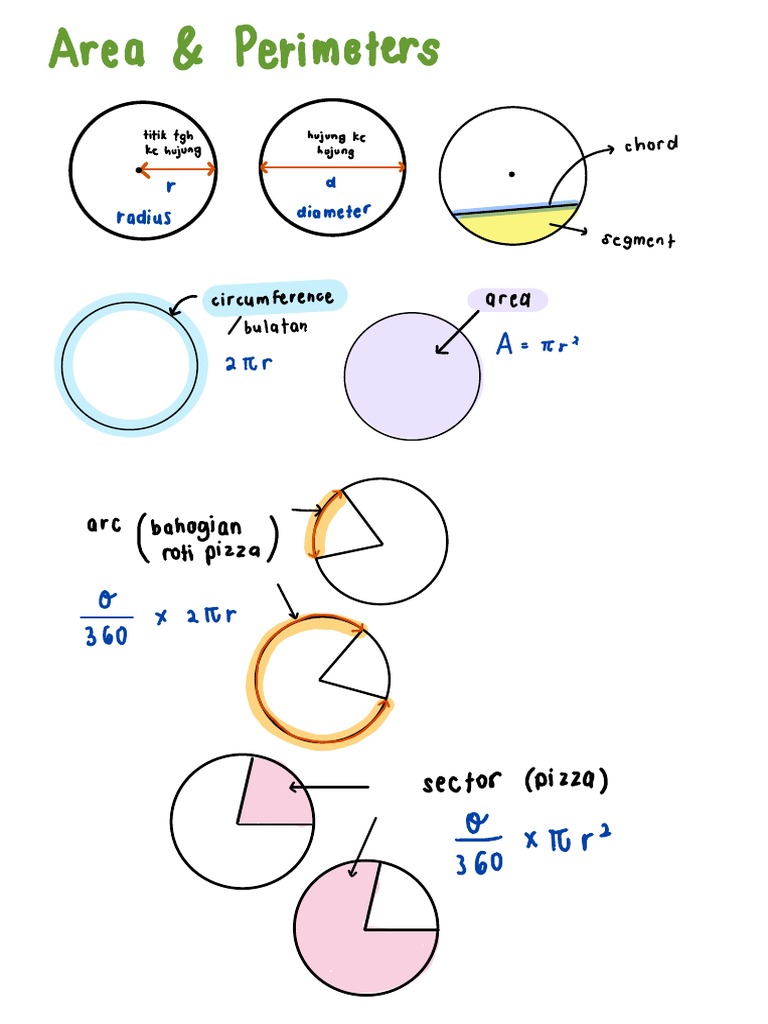 Area & Perimeters
titik tgh
ke hujung
r
radius
hujung ke
hujung
d
diameter
chord
segment
circumference
/bulatan
2πr
area
A = πr²
arc (bahagian
roti pizza)
θ
360
x 2πr
sector (pizza)
θ
360
x πr²